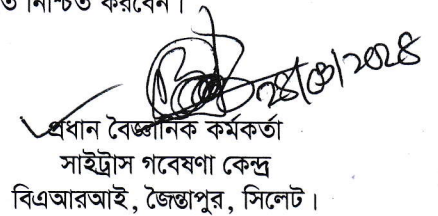 ত নিশ্চিত করবেন।
প্রধান বৈজ্ঞানিক কর্মকর্তা
সাইট্রাস গবেষণা কেন্দ্র
বিএআরআই, জৈন্তাপুর, সিলেট।